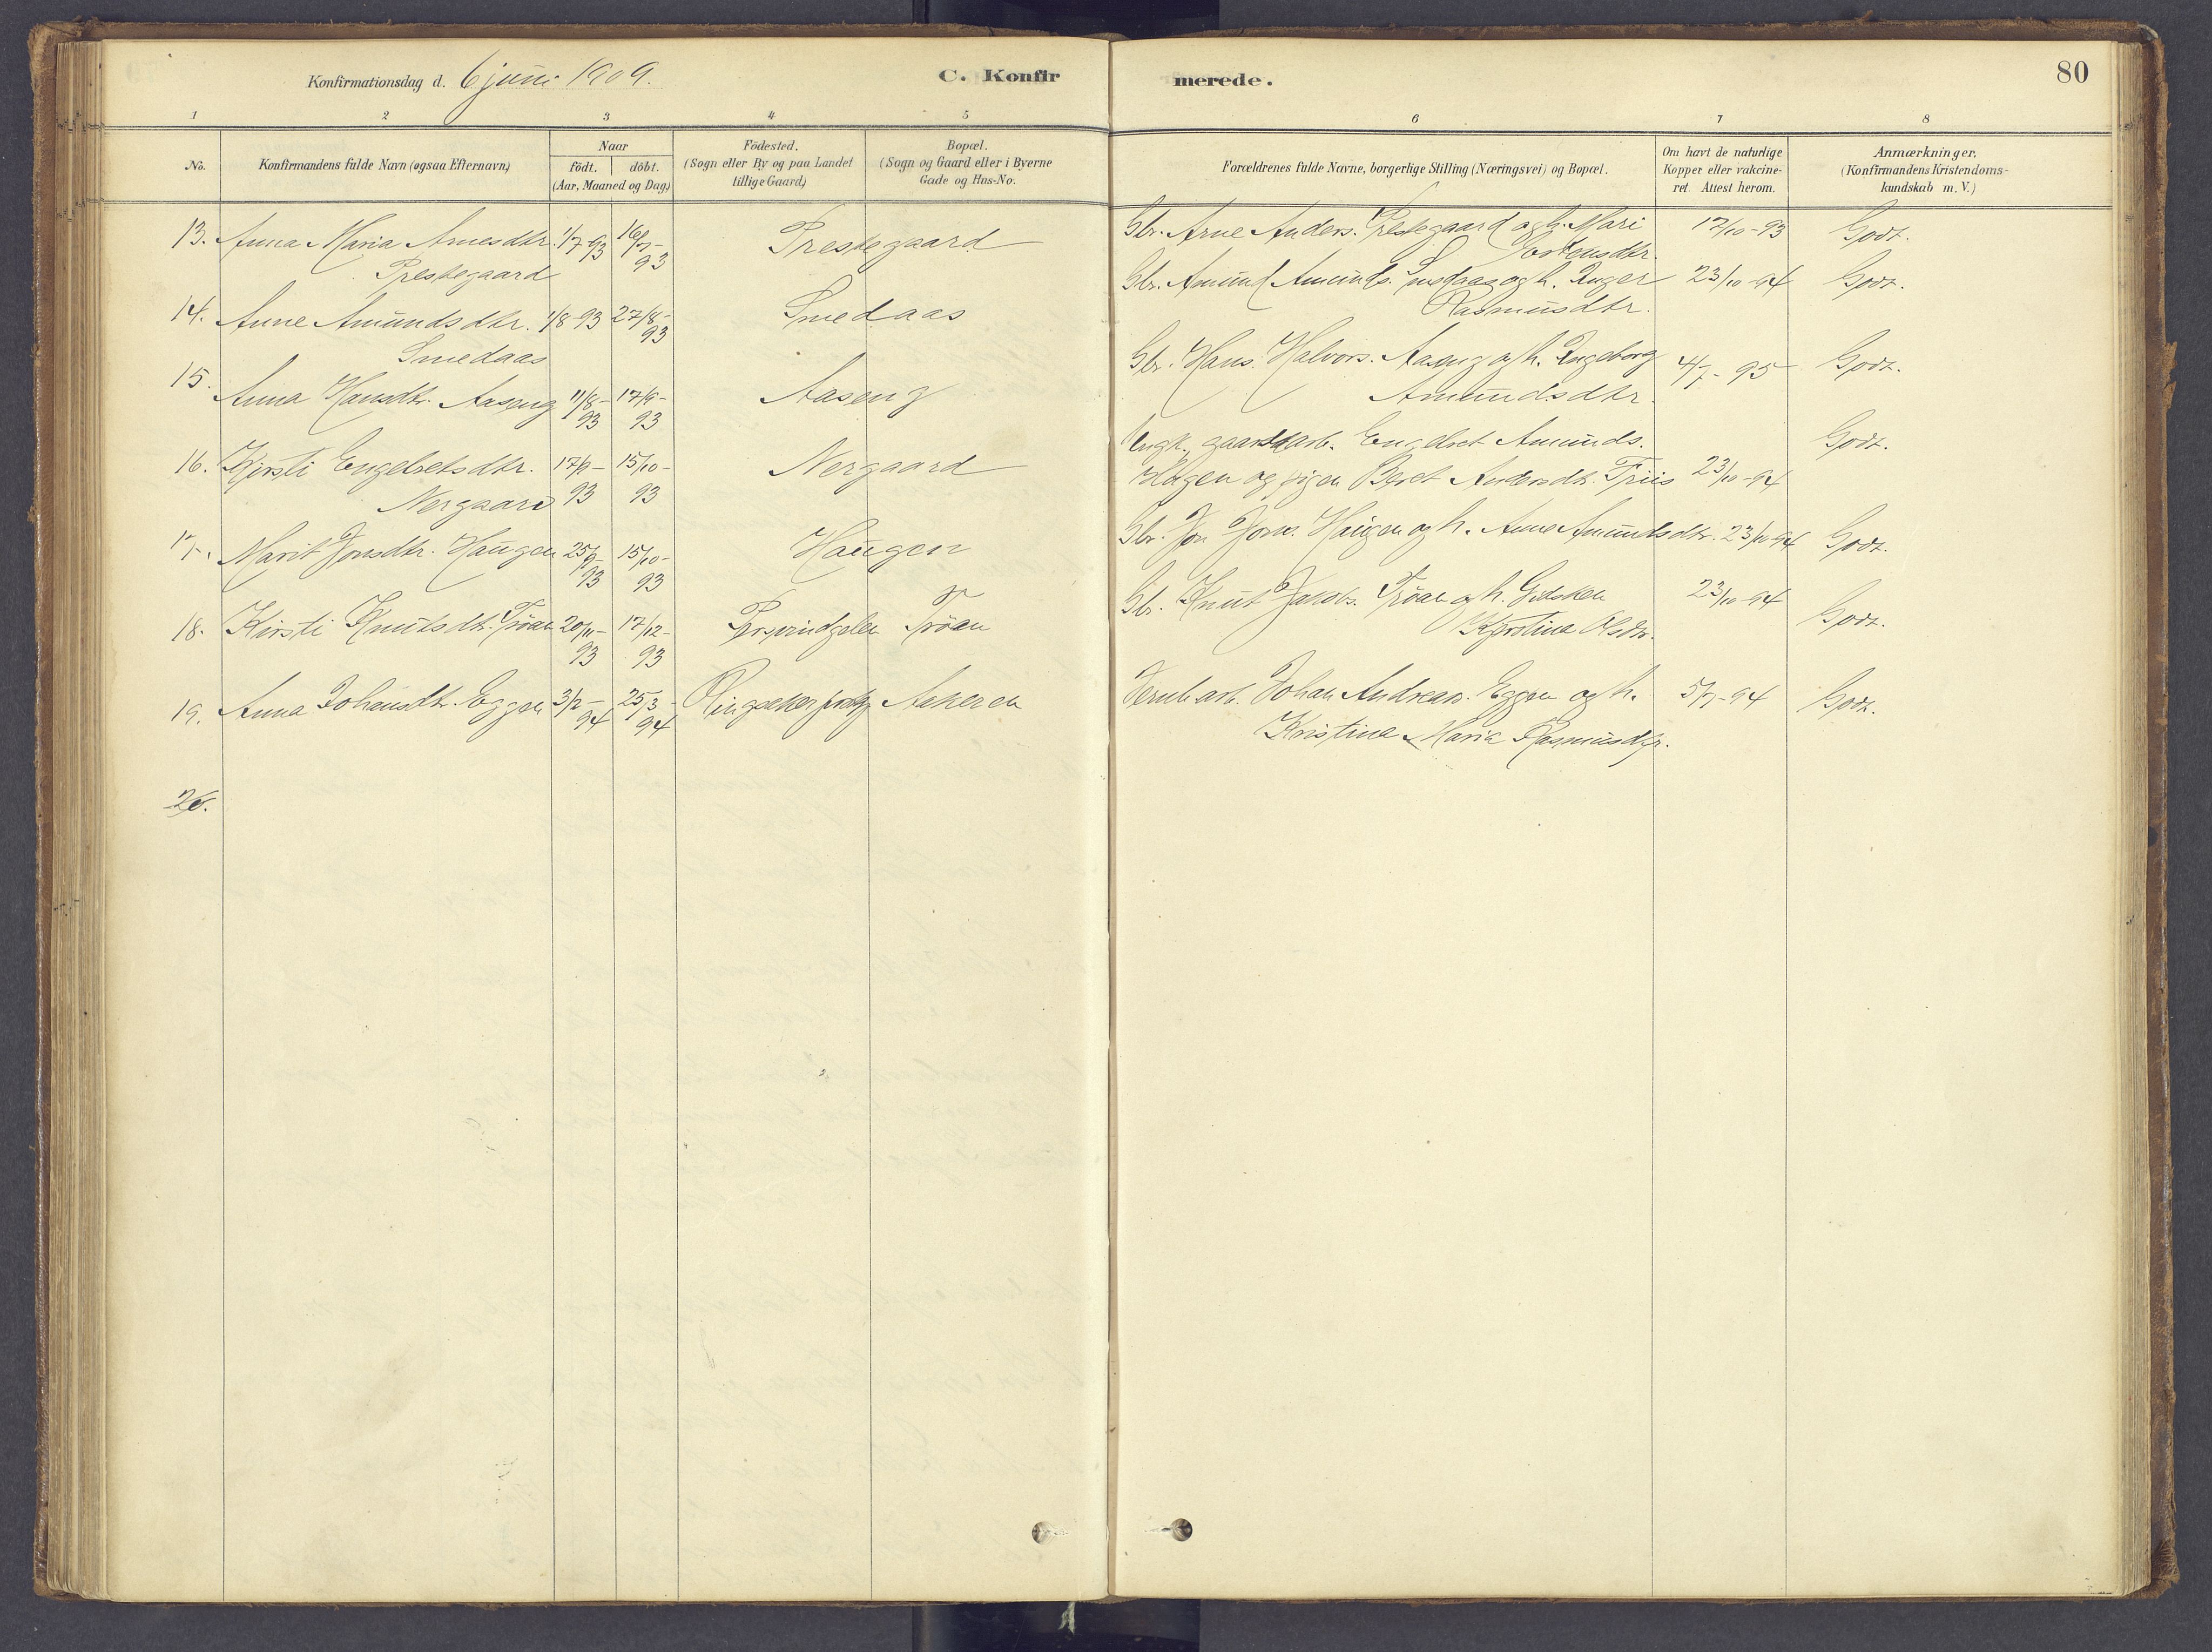 Konfirmationsdag d. 6 juni 1909.
C. Konfir
merede.
80
1 2 3 4 5 6 7 8
No.
Konfirmandens fulde Navn (ogsaa Efternavn)
Naar
födt. döbt.
(Aar, Maaned og Dag)
Födested.
(Sogn eller By og paa Landet
tillige Gaard)
Bopæl.
(Sogn og Gaard eller i Byerne
Gade og Hus-No.
Forældrenes fulde Navne, borgerlige Stilling (Næringsvei) og Bopæl.
Om havt de naturlige
Kopper eller vakcine-
ret. Attest herom.
Anmærkninger.
(Konfirmandens Kristendoms-
kundskab m. V.)
13. Anna Maria Arnesdtr. 1/7-93 16/7- Prestegaard Gbr. Arne Anders. Prestegaard og h. Mari 17/10-93 Godt.
Prestegaard 93
14. Anne Amundsdtr. 1/8-93 27/8- Smedaas Gbr. Amund Amunds. Smedaas og h. Inger 23/10-94 Godt.
Smedaas 93 Rasmusdtr.
15. Anna Hansdtr. Aaseng 11/8- 17/9- Aaseng Gbr. Hans Halvors. Aaseng og h. Ingeborg 4/7-95 Godt.
93 93 Amundsdtr.
16. Kirsti Engebretsdtr. 17/9- 15/10- Nergaard Ungk. gaardarb. Engebret Amunds. Godt.
Nergaard 93 93 Hagen og pigen Beret Andersdtr. Triis 23/10-94
17. Marit Jonsdtr. Haugen 25/9- 15/10- Haugen Gbr. Jon Jons. Haugen og h. Anne Amundsdtr. 23/10-94 Godt.
93 93
18. Kirsti Knutsdtr. Trøan 20/11- 17/12- Trøan Gbr. Knut Jakobs. Trøan og h. Gidsken 23/10-94 Godt.
93 93 Kjerstina Olsdtr.
19. Anna Johansdtr. Eggen 3/2- 25/3- Ringsaker Aakeren Jernb.arb. Johan Andreas. Eggen og h. 5/7-94 Godt.
94 94 Kristina Maria Rasmusdtr.
20.